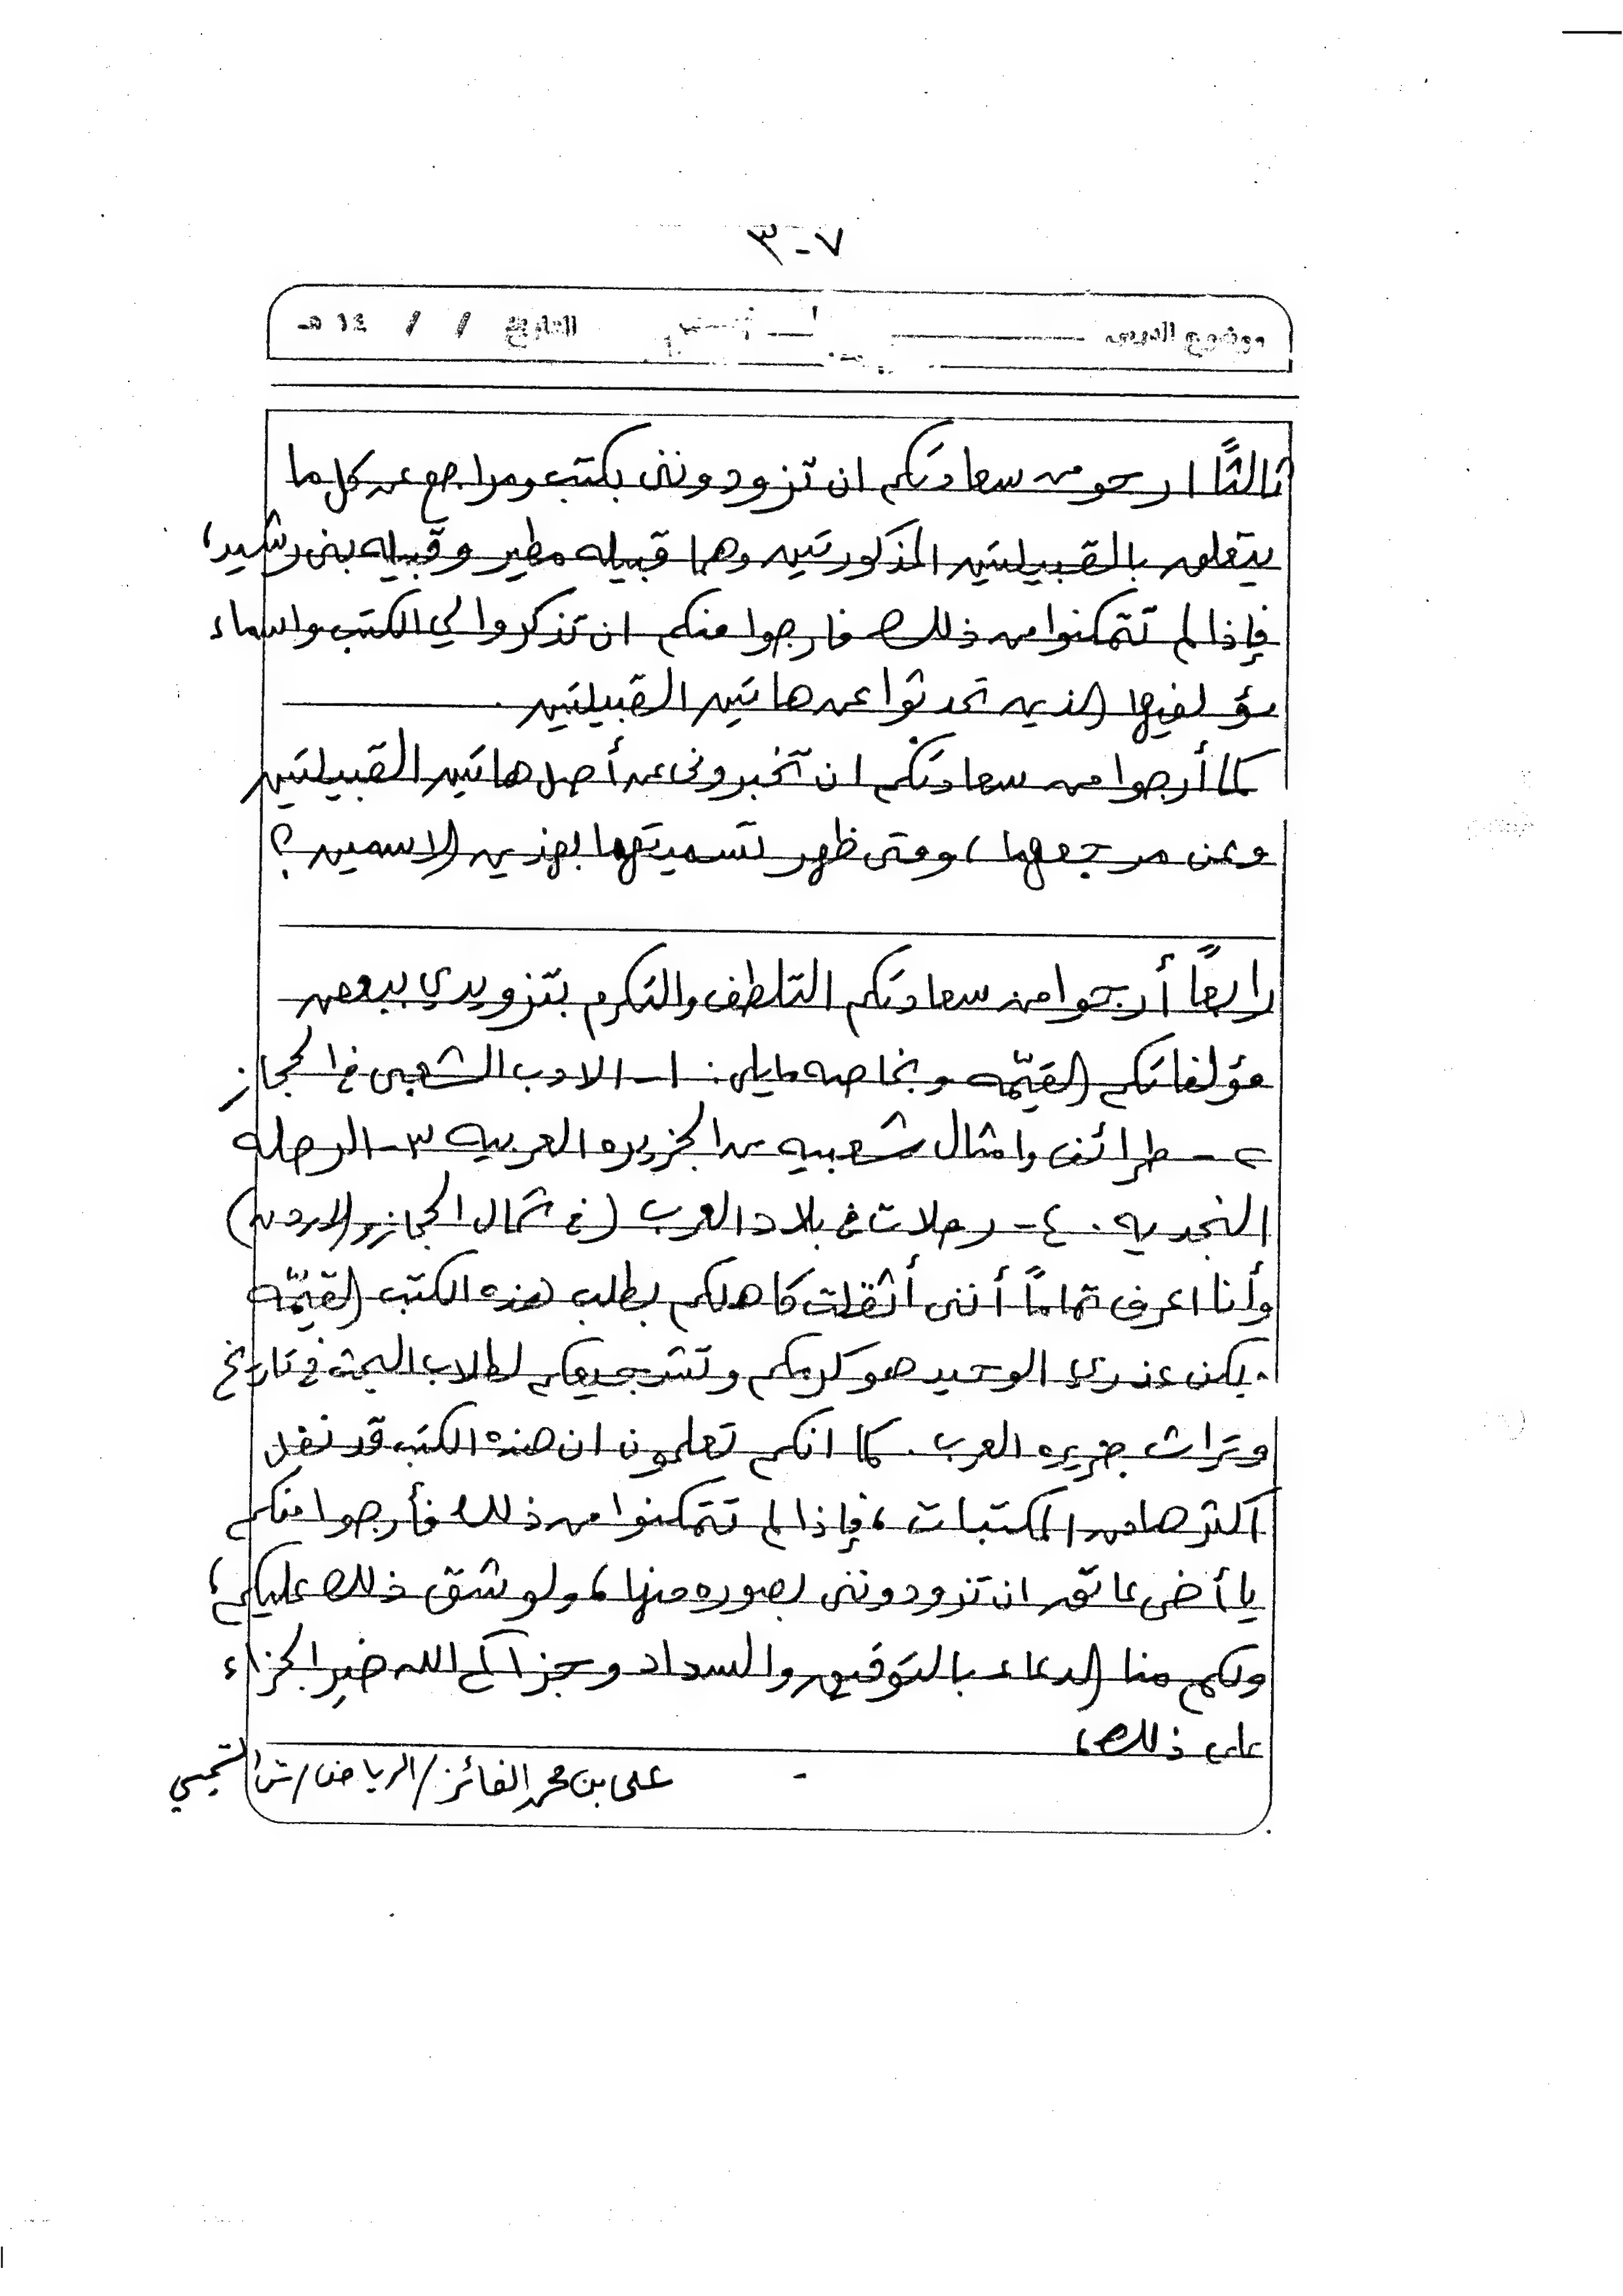 ٧-٣
موضوع الدرس التاريخ / / ١٤ هـ
ثالثًا ارجو من سعادتكم ان تزودونني بكتب ومراجع عن كل ما
يتعلق بالقبيلتين المذكورتين وهما قبيله مطير وقبيله بني رشيد،
فإذا لم تتمكنوا من ذلك فارجوا منكم ان تذكروا لي الكتب واسماء
مؤلفيها الذين تحدثوا عن هاتين القبيلتين.
كما أرجوا من سعادتكم ان تخبروني عن أصل هاتين القبيلتين
وعن مرجعهما، ومتى ظهر تسميتهما بهذين الاسمين؟
رابعًا أرجوا من سعادتكم التلطف والتكرم بتزويدي ببعض
مؤلفاتكم القيّمه وبخاصه مايلي: ١- الادب الشعبي في الحجاز
٢- طرائف وامثال شعبيه من الجزيره العربيه ٣- الرحله
النجديه. ٤- رحلات في بلاد العرب (في شمال الحجاز والاردن)
وأنا اعرف تمامًا أنني أثقلت كاهلكم بطلب هذه الكتب القيّمه
يكن عذري الوحيد هو كرمكم وتشجيعكم لطلاب البحث في تاريخ
وتراث جزيره العرب. كما انكم تعلمون ان هذه الكتب قد نفد
اكثرها من المكتبات، فإذا لم تتمكنوا من ذلك فأرجوا منكم
يا أخي عاتق ان تزودونني بصوره منها، ولو شق ذلك عليكم،
ولكم منا الدعاء بالتوفيق والسداد وجزاكم الله خير الجزاء
على ذلك،
علي بن محمد الفائز/الرياض/ش